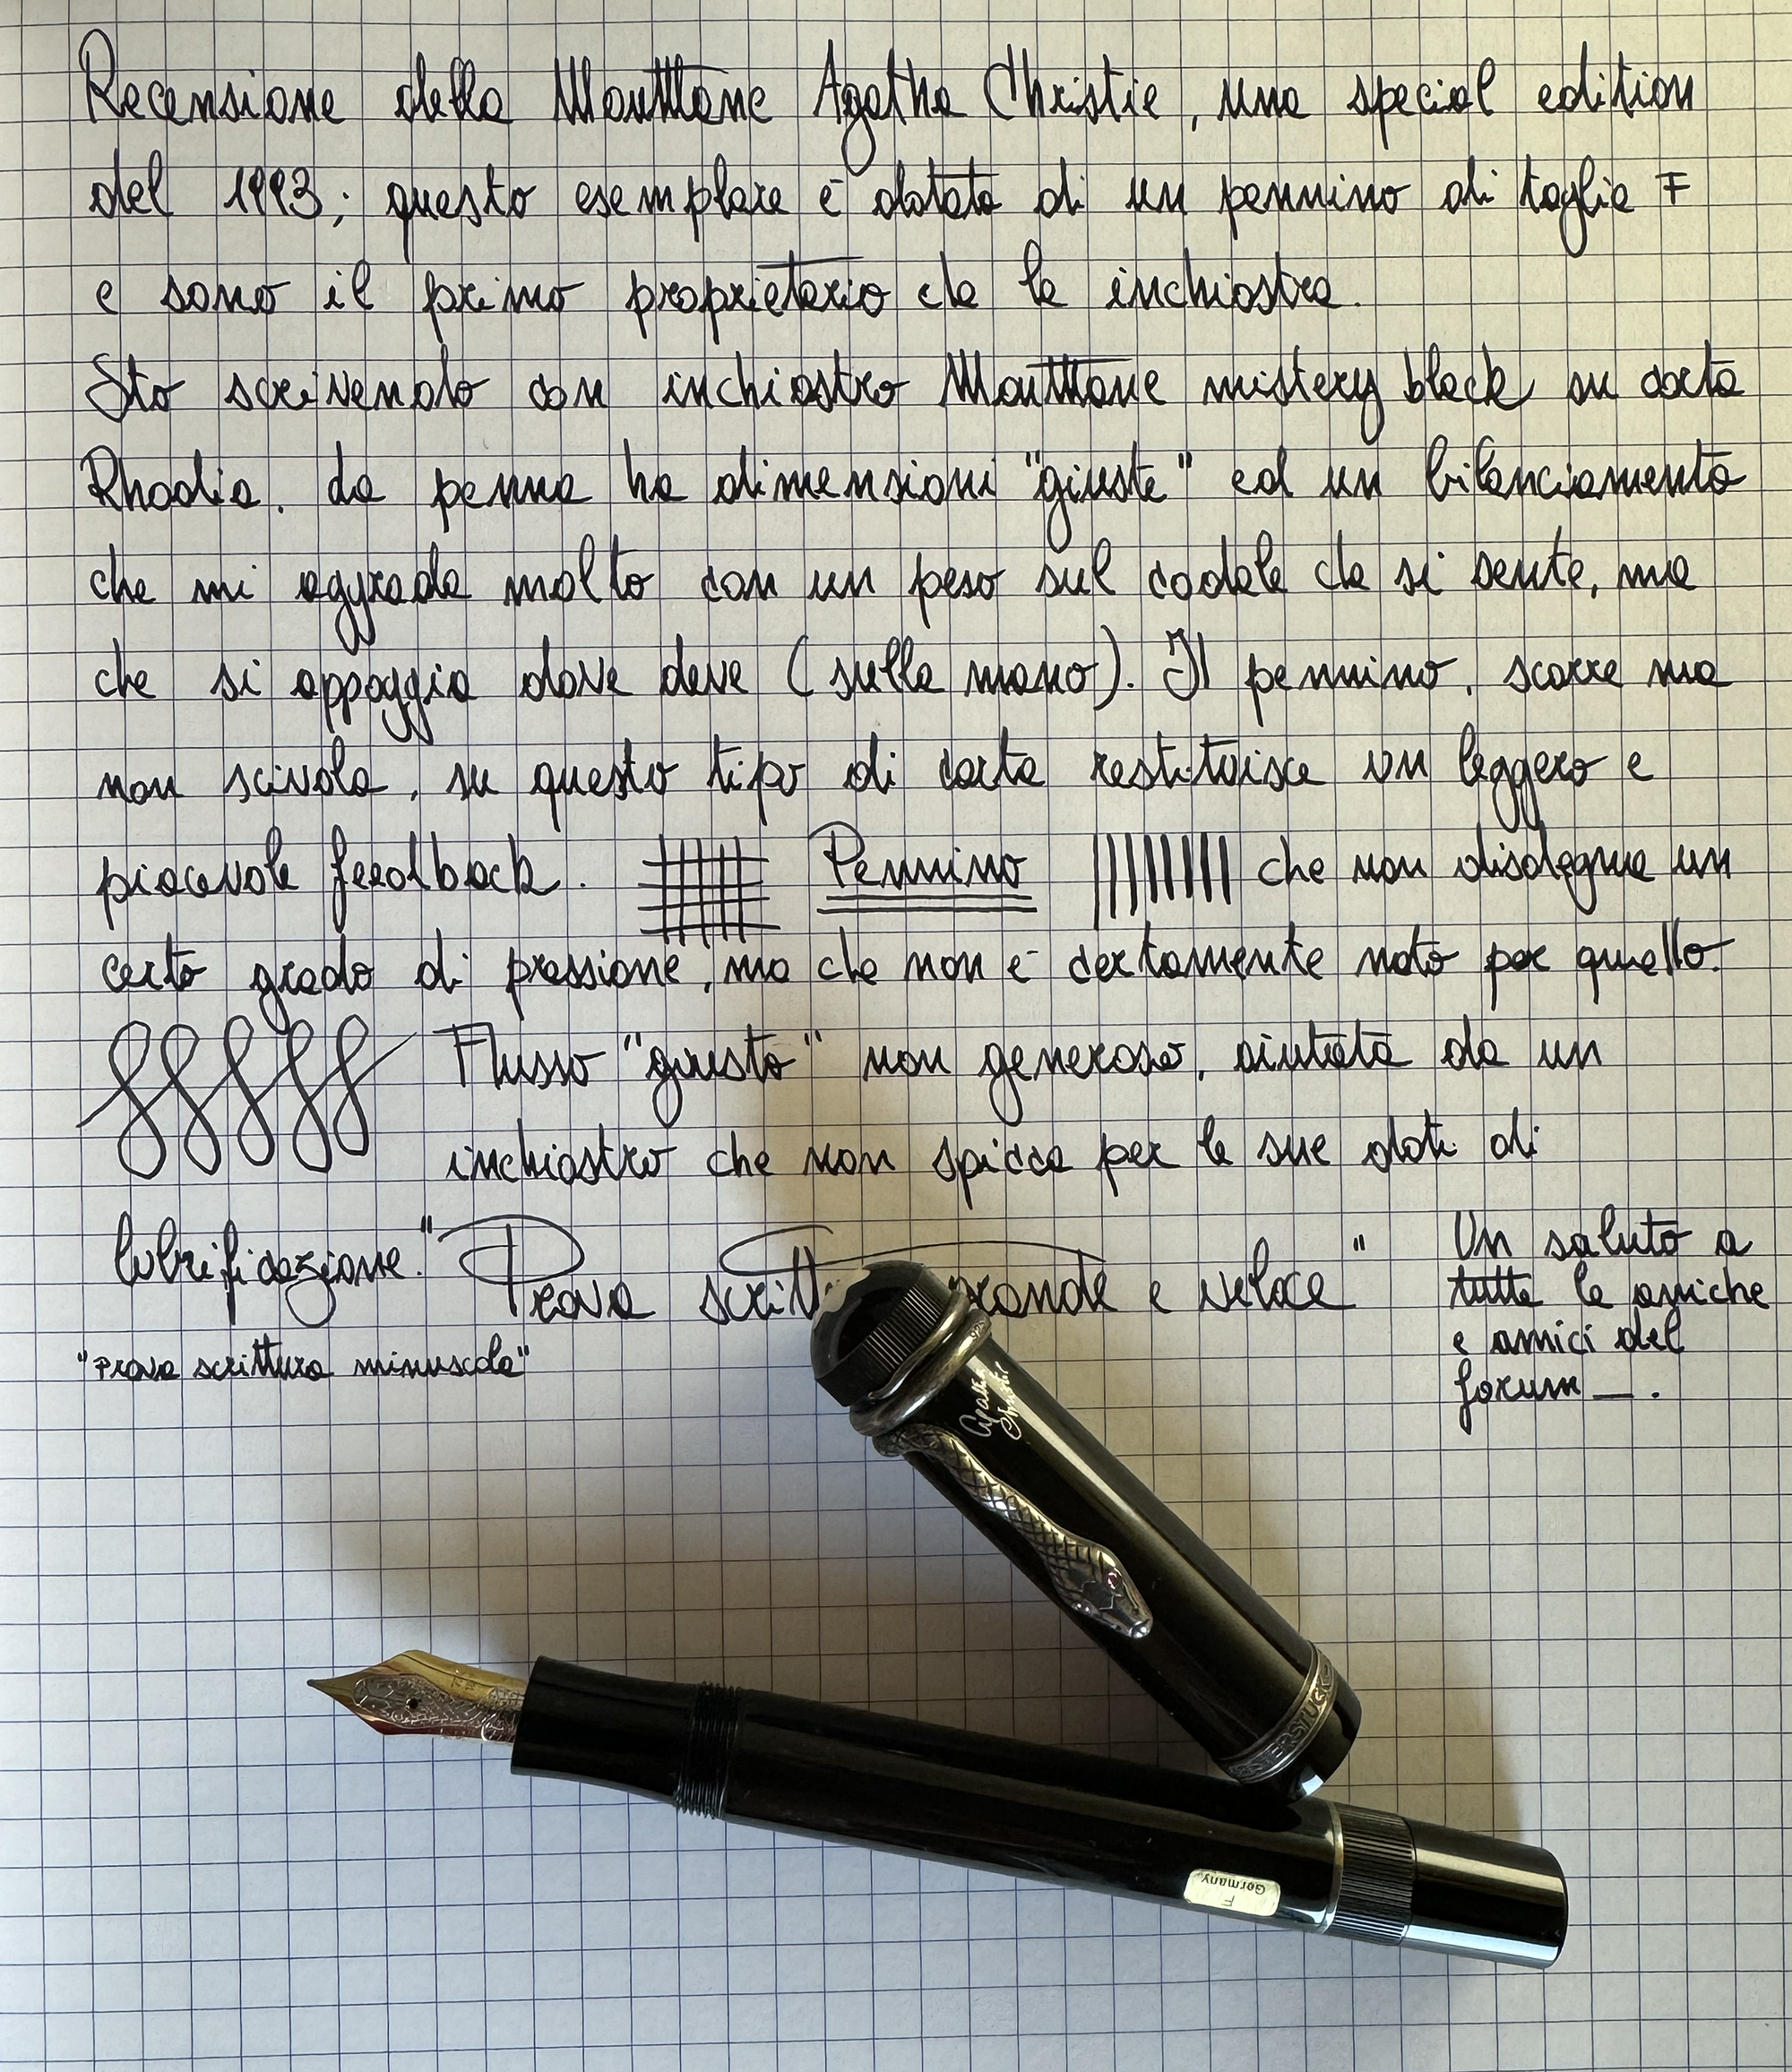 Recensione della Montblanc Agatha Christie, una special edition
del 1993; questo esemplare è dotato di un pennino di taglia F
e sono il primo proprietario che la inchiostra.
Sto scrivendo con inchiostro Montblanc mistery black su carta
Rhodia. La penna ha dimensioni "giuste" ed un bilanciamento
che mi aggrada molto con un peso sul codale che si sente, ma
che si appoggia dove deve (sulla mano). Il pennino, scorre ma
non scivola, su questo tipo di carta restituisce un leggero e
piacevole feedback. Pennino che non disdegna un
certo grado di pressione, ma che non è certamente noto per quello.
Flusso "giusto" non generoso, aiutato da un
inchiostro che non spicca per le sue doti di
lubrificazione. "Prova grande e veloce"
"Prova scrittura minuscola"
Un saluto a
tutte le amiche
e amici del
forum
Agatha
Christie
925
F
Germany